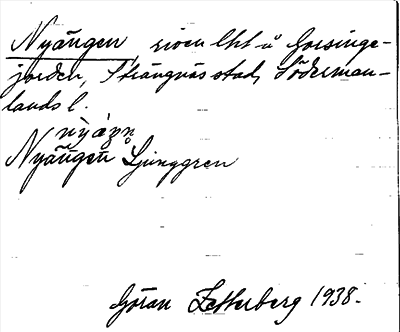 Nyängen, riven lht å Gorsinge-
jorden, Strängnäs stad, Söderman-
lands l.
nỳáŋn
Nyängen Ljunggren
Göran Zetterberg 1938.